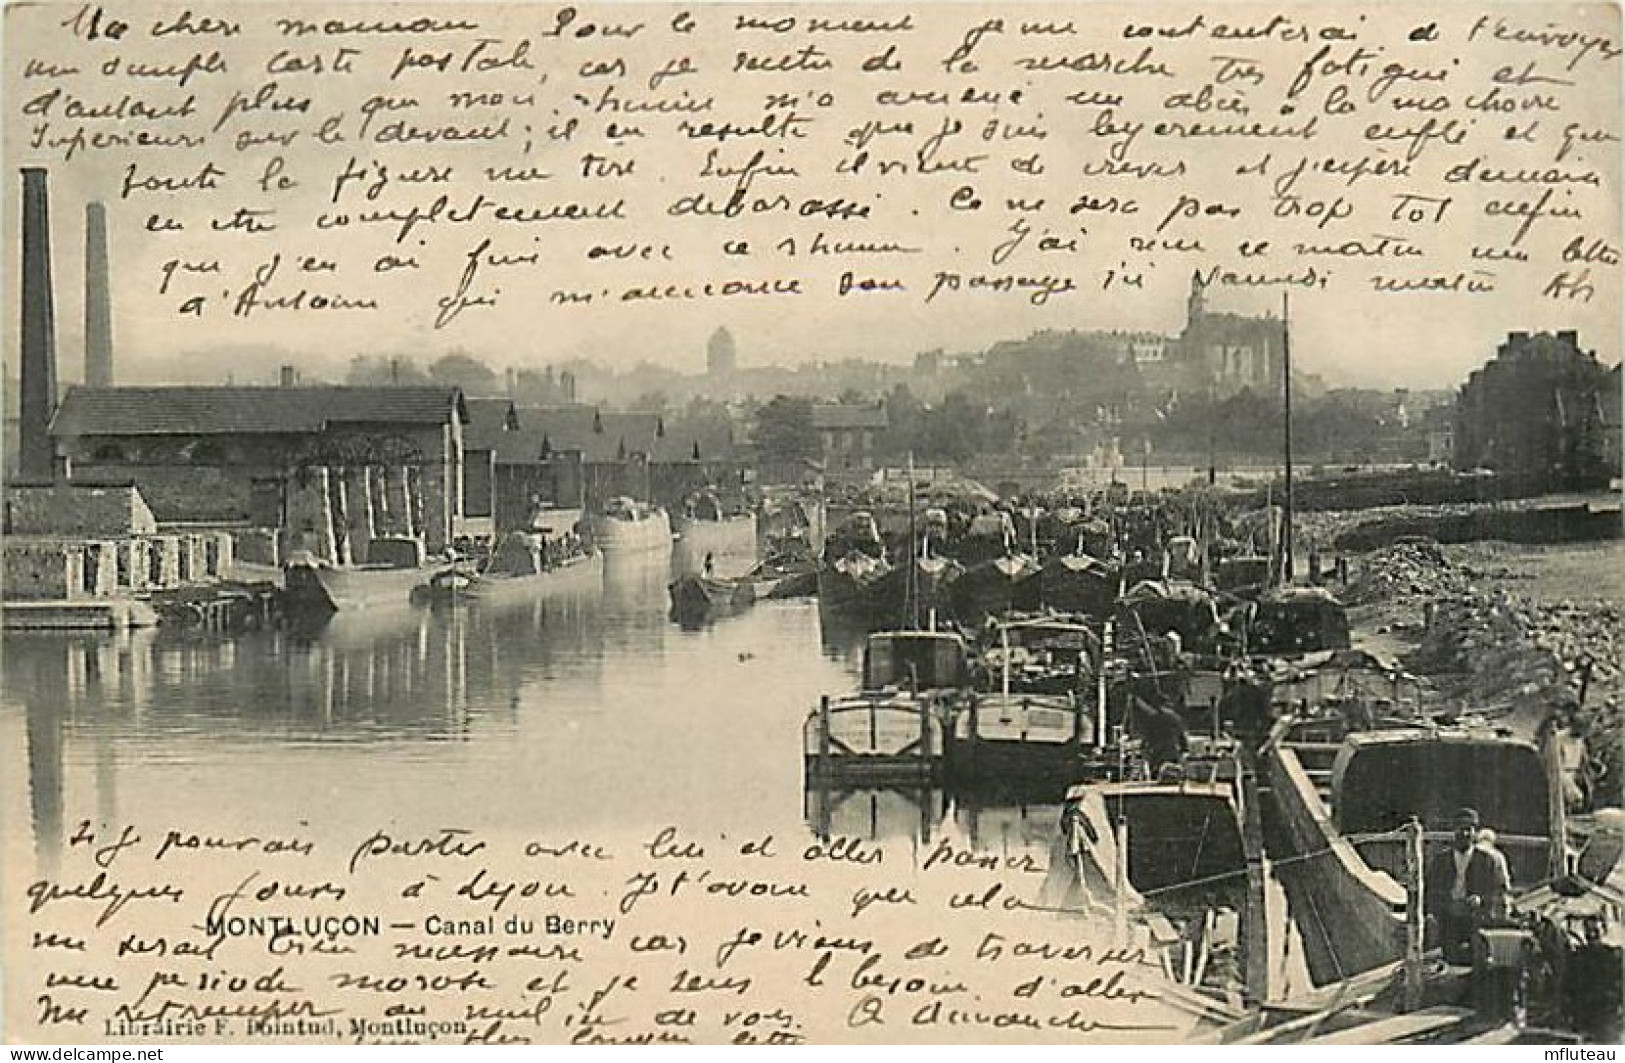 Ma chere maman Pour le moment je me contenterai de t'envoyer
une simple carte postale, car je rentre de la marche très fatigué et
d'autant plus que mon rhume m'a amené un abcès à la machoire
superieure sur le devant; il en resulte que je suis legerement enflé et que
toute la figure me tire. Enfin il vient de crever et j'espère demain
en etre completement debarassé. Ce ne sera pas trop tot enfin
que j'en ai fini avec ce rhume. J'ai recu ce matin une lettre
d'Antoine qui m'annonce son passage ici Samedi matin Ah
si je pouvais partir avec lui et aller passer
quelques jours à Lyon. Je t'avoue que cela
MONTLUÇON — Canal du Berry
me serait bien necessaire car je viens de traverser
une periode morose et je sens le besoin d'aller
me retremper au milieu de vous. A dimanche
Librairie F. Pointud, Montluçon
une plus longue lettre
mfluteau
delcampe.net